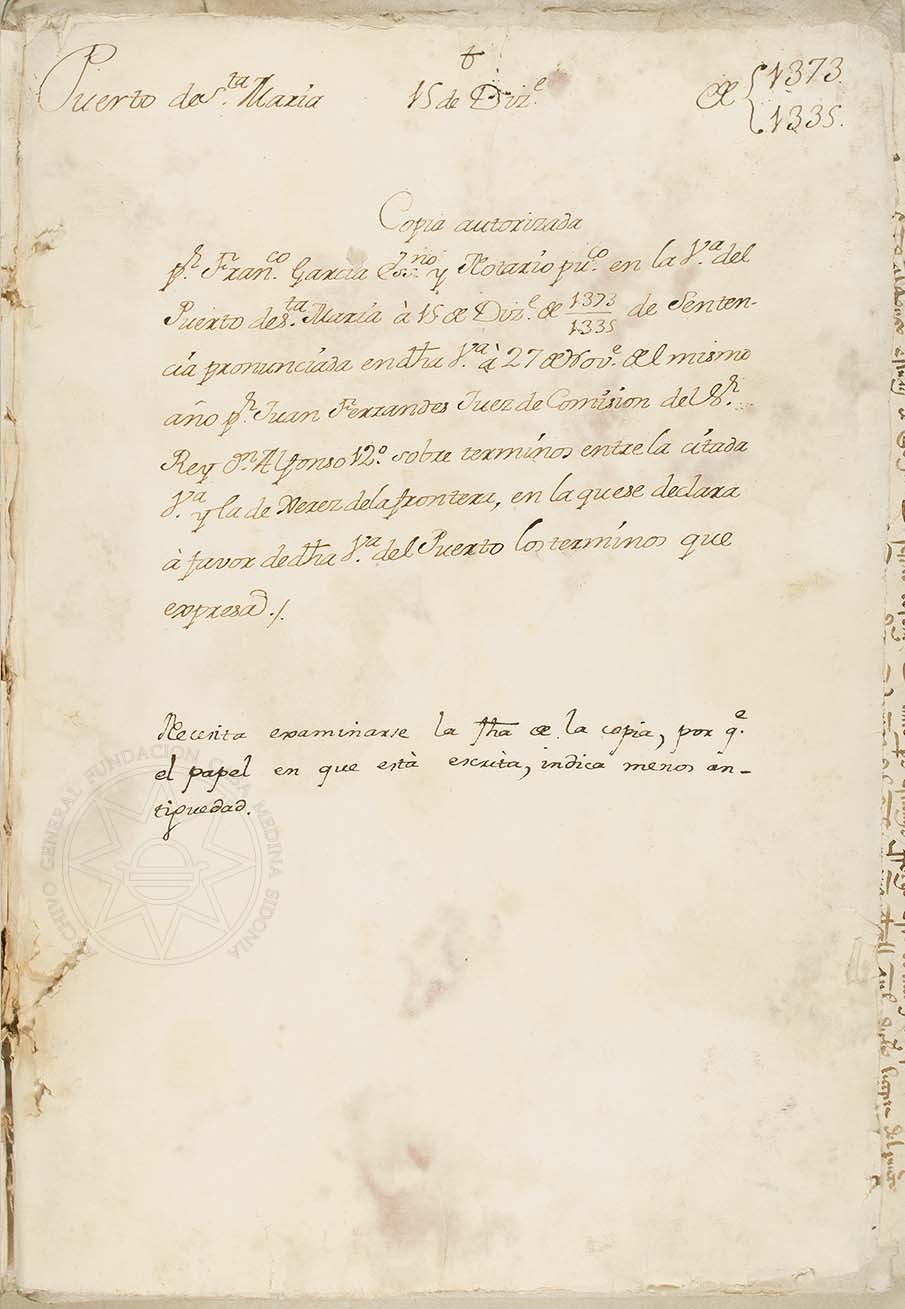 †
Puerto de S.ta María 15 de Diz.e de { 1373
1335.
Copia autorizada
p.r Fran.co Garcia Ess.no y Notario pu.co en la V.a del
Puerto de S.ta Maria à 15 de Diz.e de 1373/1335 de Senten-
cia pronunciada en dha V.a à 27 de Nov.e del mismo
año p.r Juan Ferrandes Juez de Comision del S.r
Rey d.n Alfonso 12.o sobre terminos entre la citada
V.a y la de Xerez de la frontera, en la que se declara
à favor de dha V.a del Puerto los terminos que
expresa ./.
Necesita examinarse la fha de la copia, por q.e
el papel en que està escrita, indica menos an-
tiguedad.
ARCHIVO GENERAL FUNDACION CASA MEDINA SIDONIA